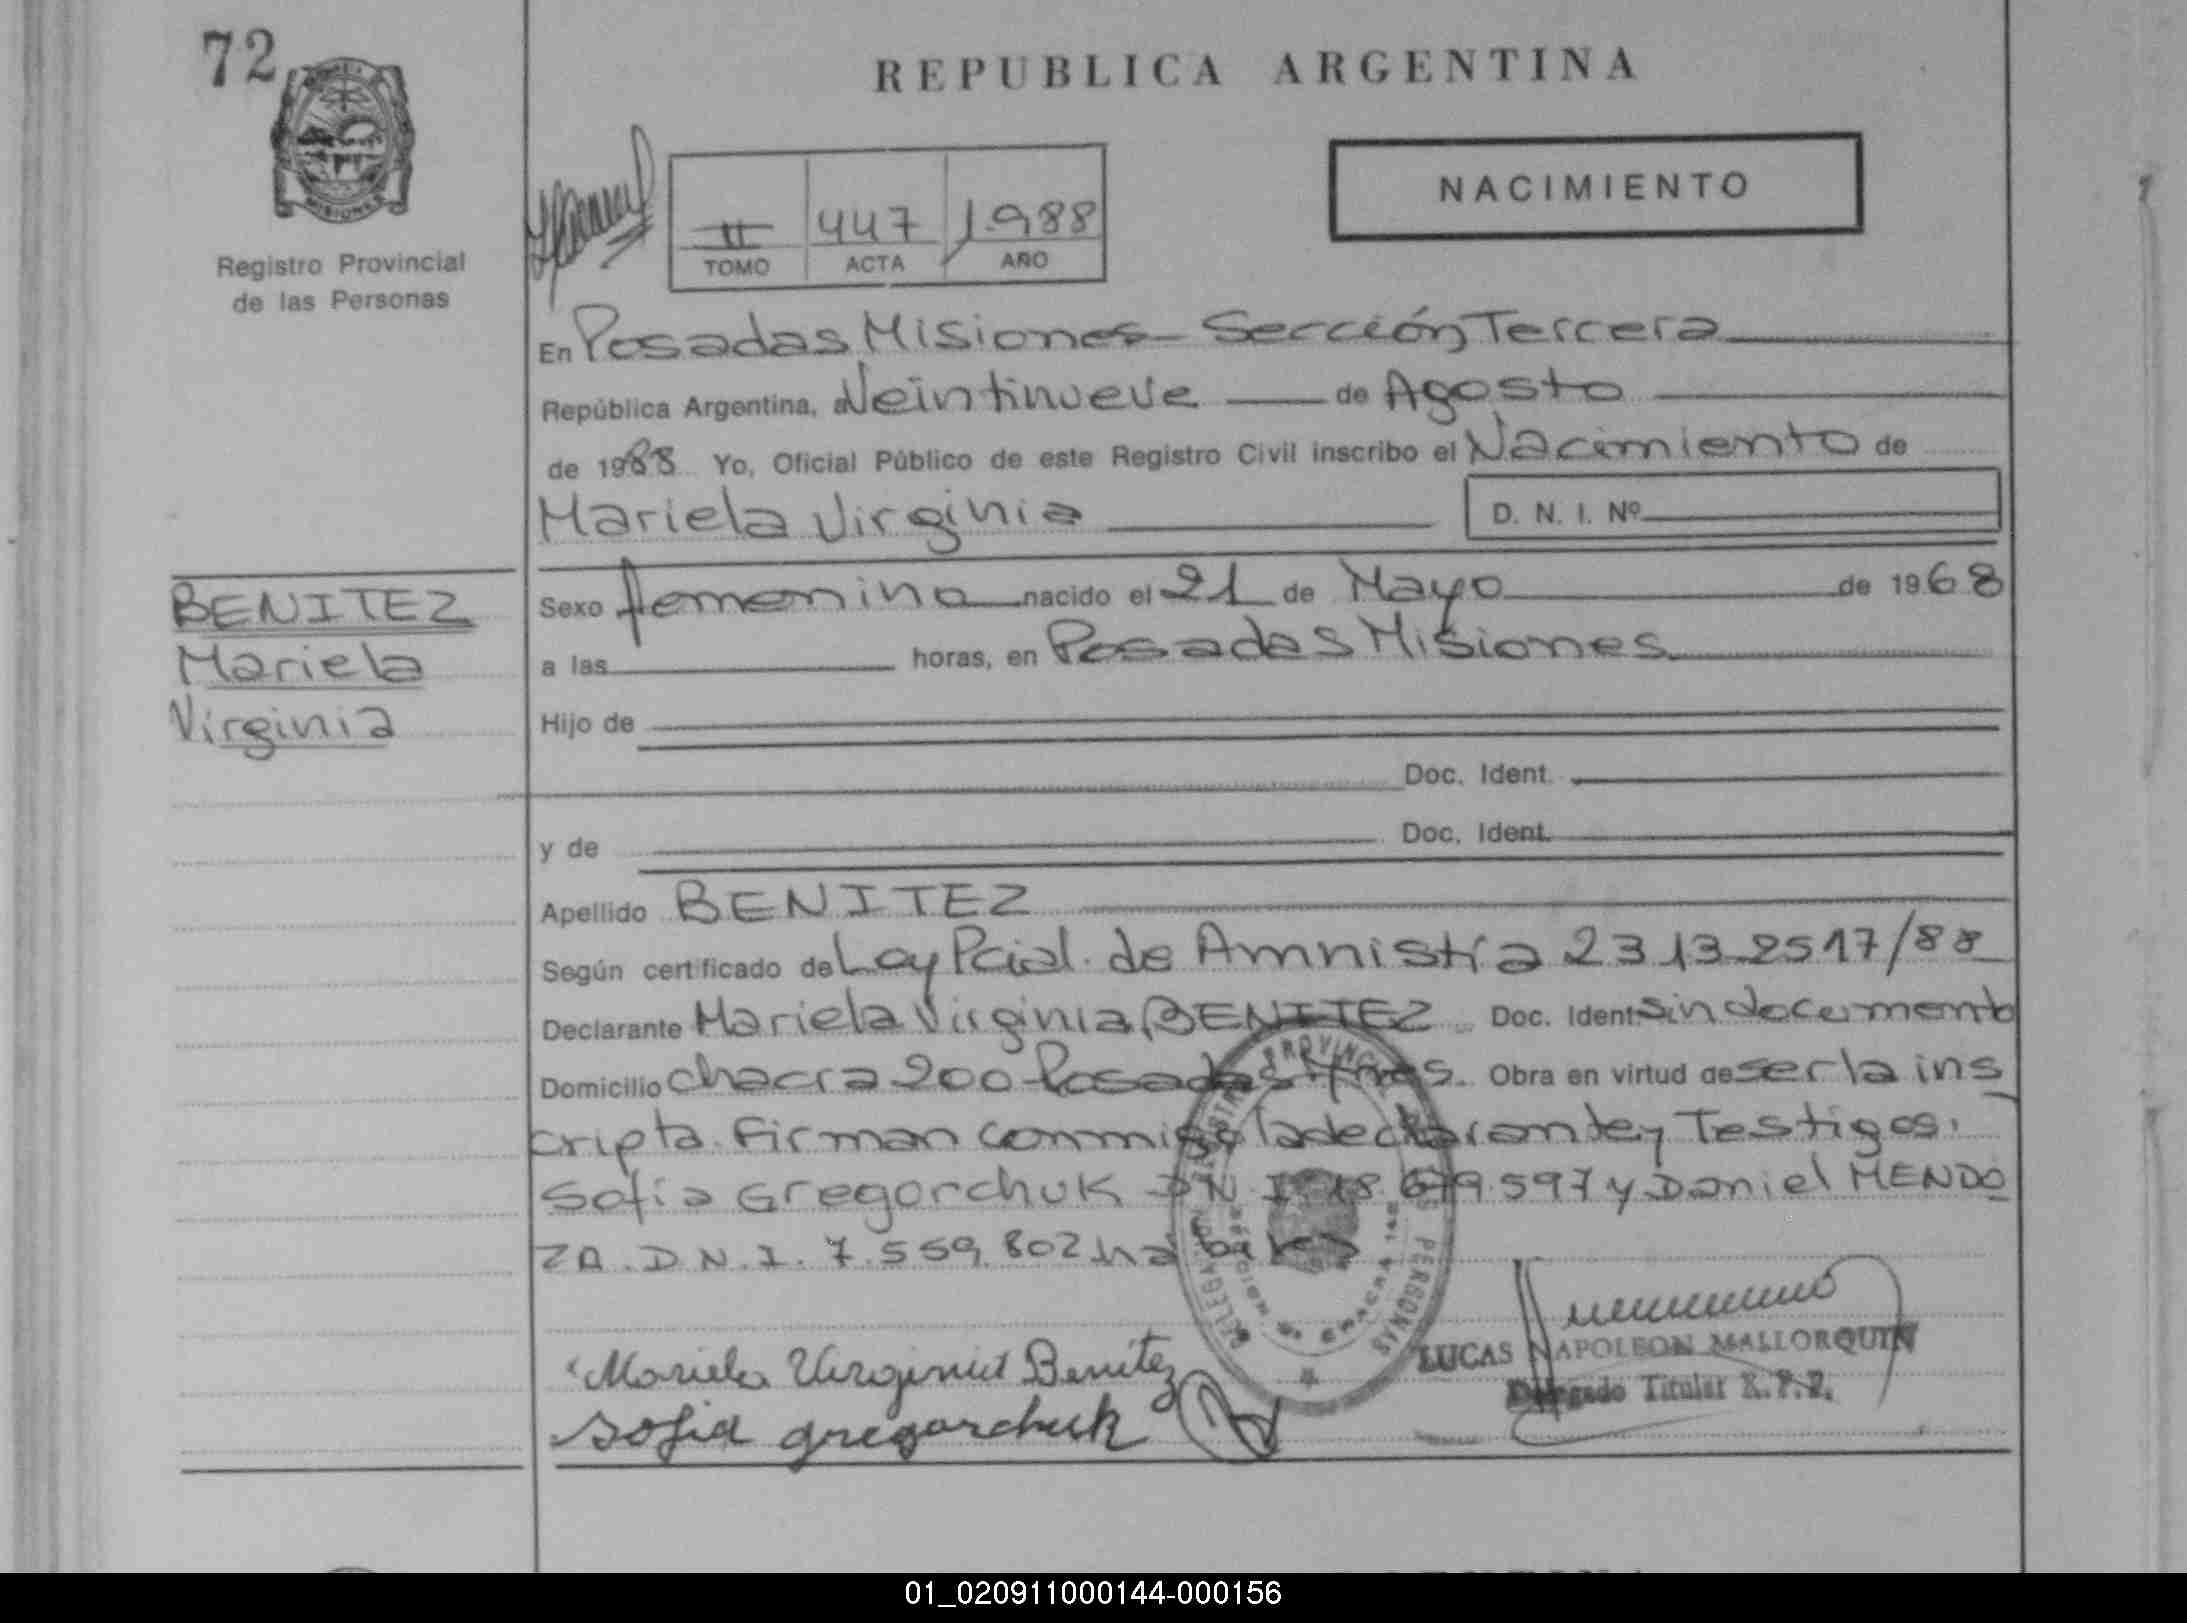 72
REPUBLICA ARGENTINA
MISIONES
Registro Provincial
de las Personas
II 447 1988
TOMO ACTA AÑO
NACIMIENTO
En Posadas Misiones - Sección Tercera
República Argentina, a Veintinueve de Agosto
de 1988 Yo, Oficial Público de este Registro Civil inscribo el Nacimiento de
Mariela Virginia D. N. I. Nº
BENITEZ
Mariela
Virginia
Sexo femenino nacido el 21 de Mayo de 1968
a las horas, en Posadas Misiones
Hijo de
Doc. Ident.
y de Doc. Ident.
Apellido BENITEZ
Según certificado de Ley Pcial. de Amnistía 2313-2517/88
Declarante Mariela Virginia BENITEZ Doc. Ident. sin documento
Domicilio chacra 200 Posadas Mnes. Obra en virtud de ser la ins
cripta. Firman conmigo la declarante y Testigos.
Sofia Gregorchuk D N I 18.679.597 y Daniel MENDO
ZA. D.N.I. 7.559.802 habiles
Mariela Virginia Benitez
Sofia gregorchuk
LUCAS NAPOLEON MALLORQUIN
Delegado Titular R.P.P.
01_020911000144-000156